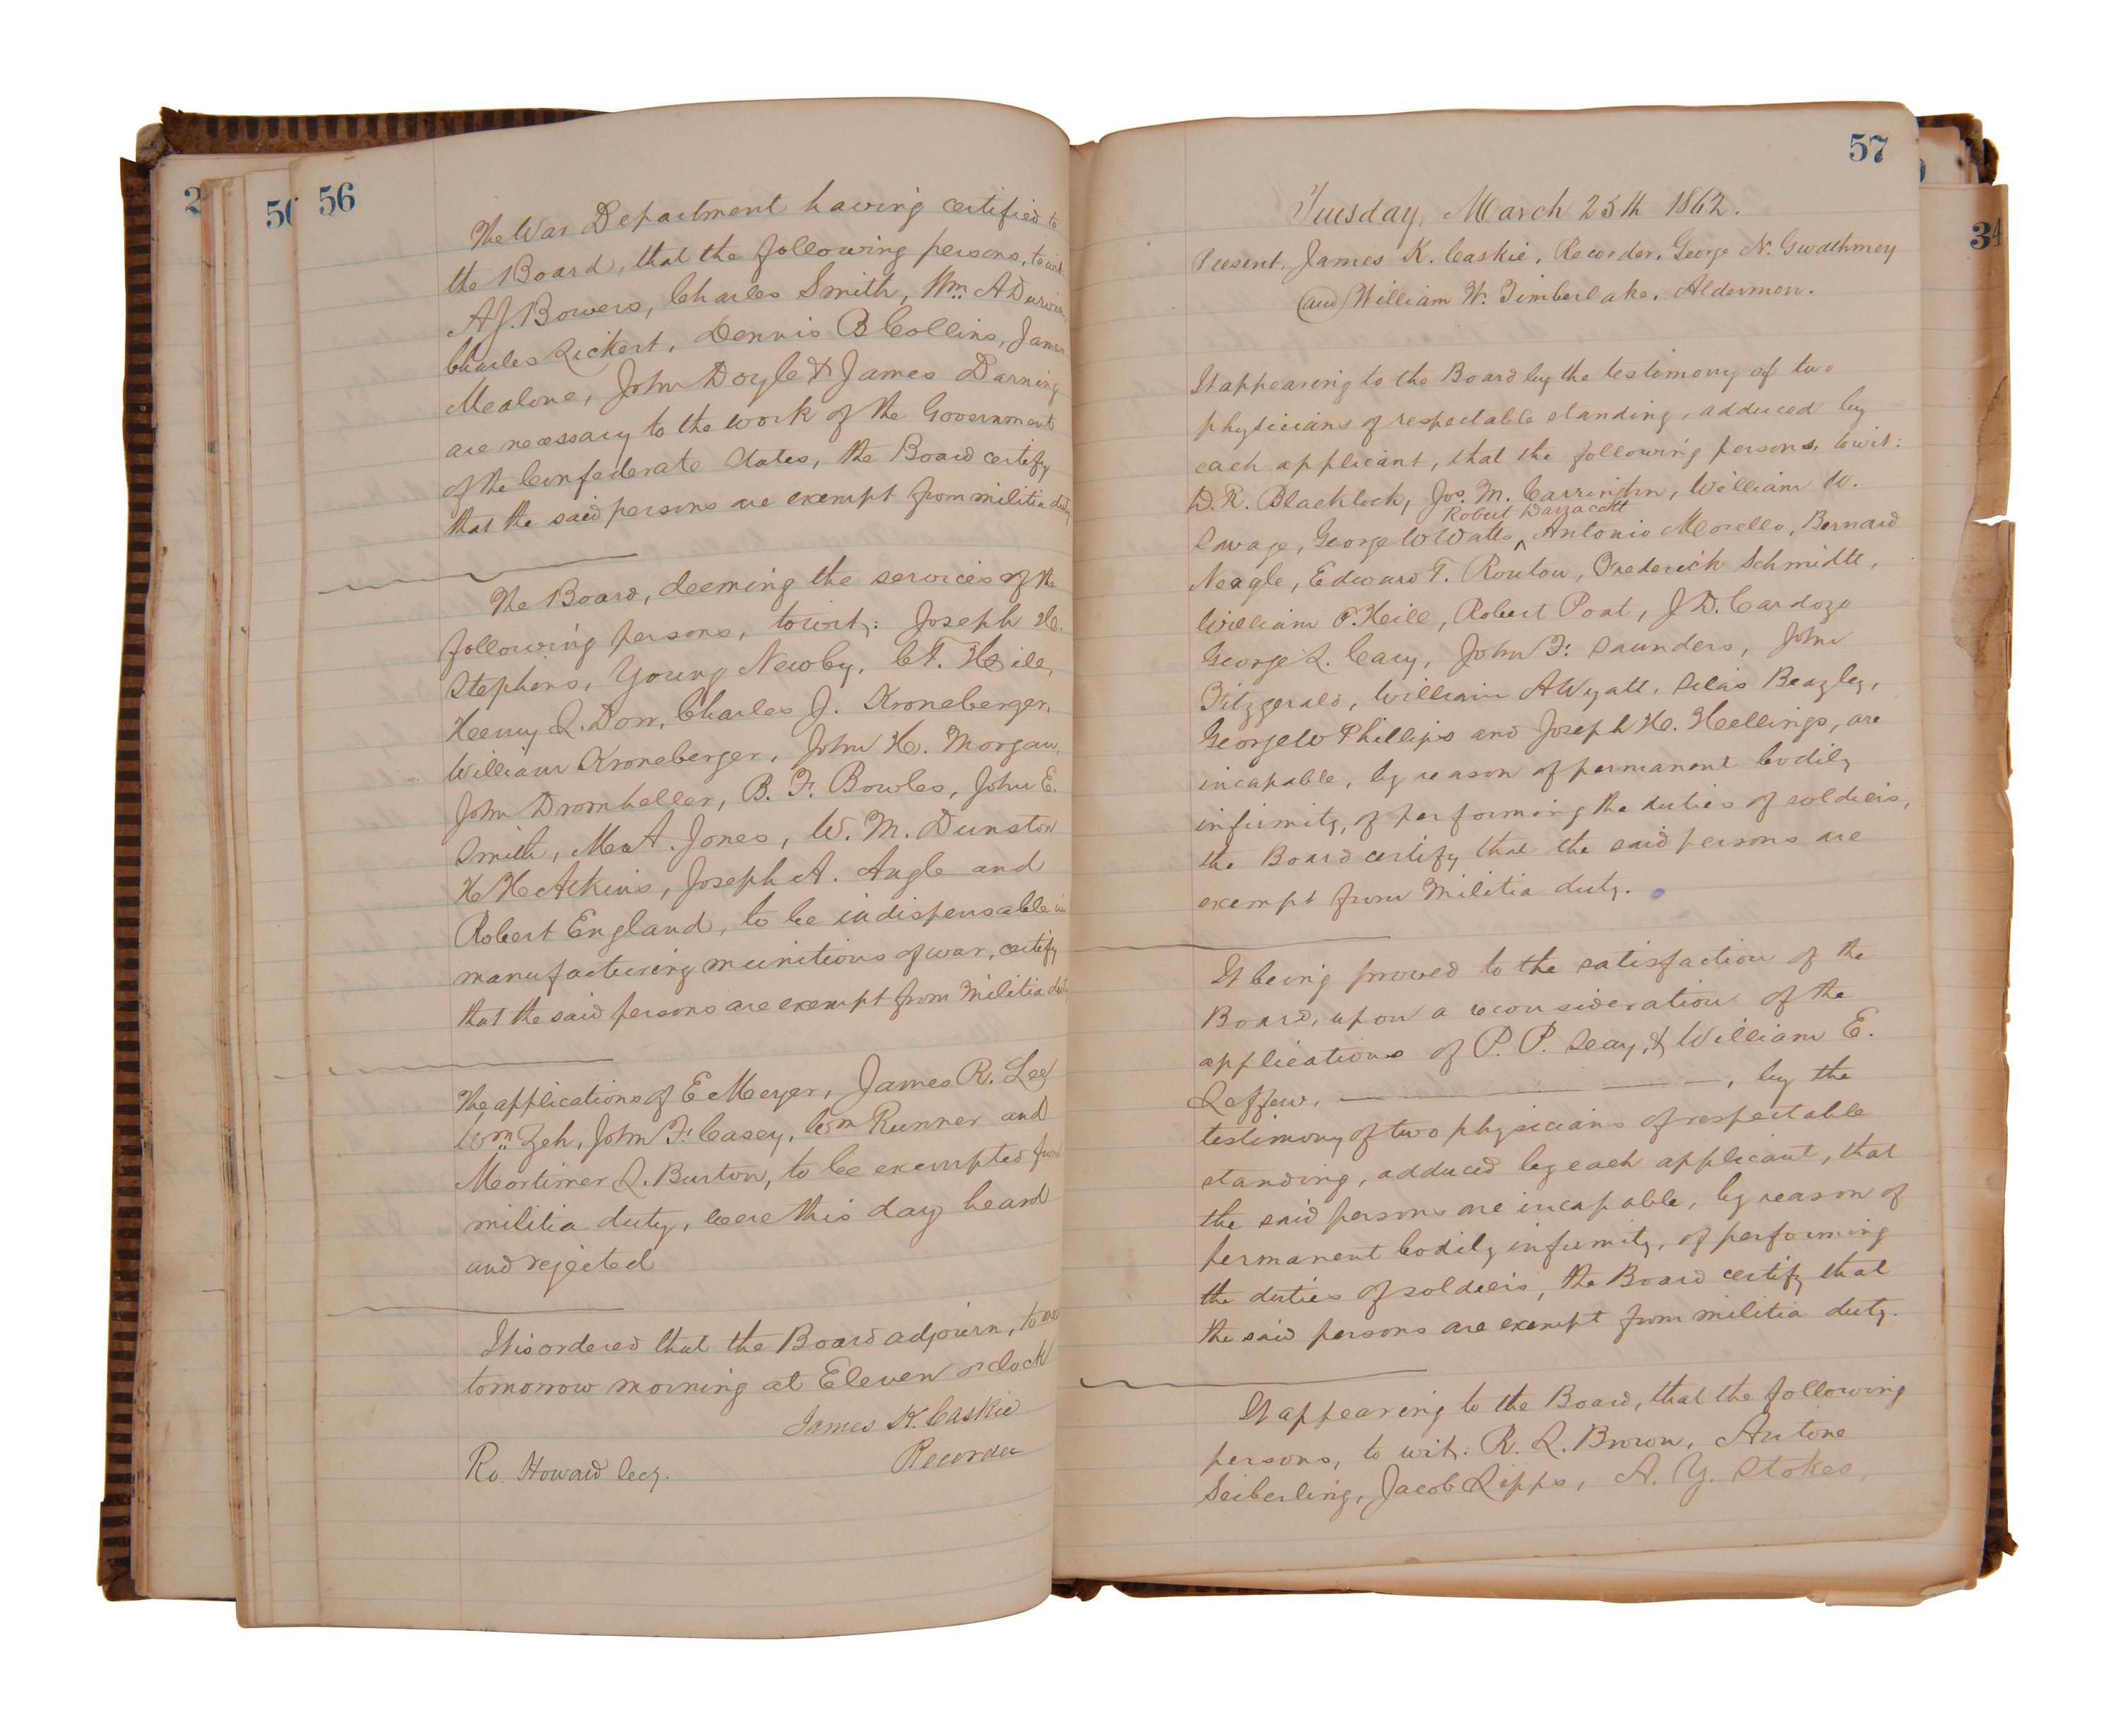 2
50
56
The War Department having certified to
the Board, that the following persons, towit
A J. Bowers, Charles Smith, Wm. A
Charles Rickert, Dennis B Collins, James
Mealone, John Doyle & James Darning
are necessary to the work of the Government
of the Confederate States, the Board certify
that the said persons are exempt from militia duty
The Board, deeming the services of the
following persons, towit,: Joseph H.
Stephens, Young Newby, C T. Hill,
Henry L. Dorr, Charles J. Kroneberger,
William Kroneberger, John H. Morgan,
John Dromheller, B. F. Bowles, John E.
Smith, M A. Jones, W. M. Dunston
H H Atkins, Joseph A. Angle and
Robert England, to be indispensable in
manufacturing munitions of war, certify
that the said persons are exempt from Militia duty
The applications of E Meyer, James R. Lee
Wm. Zeh, John F. Casey, Wm Runner and
Mortimer L. Burton, to be exempted from
militia duty, were this day heard
and rejected
It is ordered that the Board adjourn, to
tomorrow morning at Eleven o'clock
James K. Caskie
Recorder
Ro. Howard Secy.
57
34
Tuesday, March 25th 1862.
Present, James K. Caskie, Recorder, George N. Gwathmey
(and) William W. Timberlake, Aldermen.
It appearing to the Board by the testimony of two
physicians of respectable standing, adduced by
each applicant, that the following persons, towit:
D. R. Blacklock, Jos. M. Carrington, William W.
Robert Darracott
Savage, George W Watts, ^ Antonio Morello, Bernard
Neagle, Edward T. Routon, Frederick Schmidt,
William P. Hill, Robert Poat, J D. Cardozo
George L. Cary, John F. Saunders, John
Fitzgerald, William A Wyatt, Silas Beazley,
George W Phillips and Joseph H. Hellings, are
incapable, by reason of permanent bodily
infirmity, of performing the duties of soldiers,
the Board certify that the said persons are
exempt from Militia duty.
It being proved to the satisfaction of the
Board, upon a reconsideration of the
applications of P. P. Seay, & William E.
Leffew, , by the
testimony of two physicians of respectable
standing, adduced by each applicant, that
the said persons are incapable, by reason of
permanent bodily infirmity, of performing
the duties of soldiers, the Board certify that
the said persons are exempt from militia duty.
It appearing to the Board, that the following
persons, to wit: R. L. Brown, Antone
Seiberling, Jacob Lipps, A. Y. Stokes,